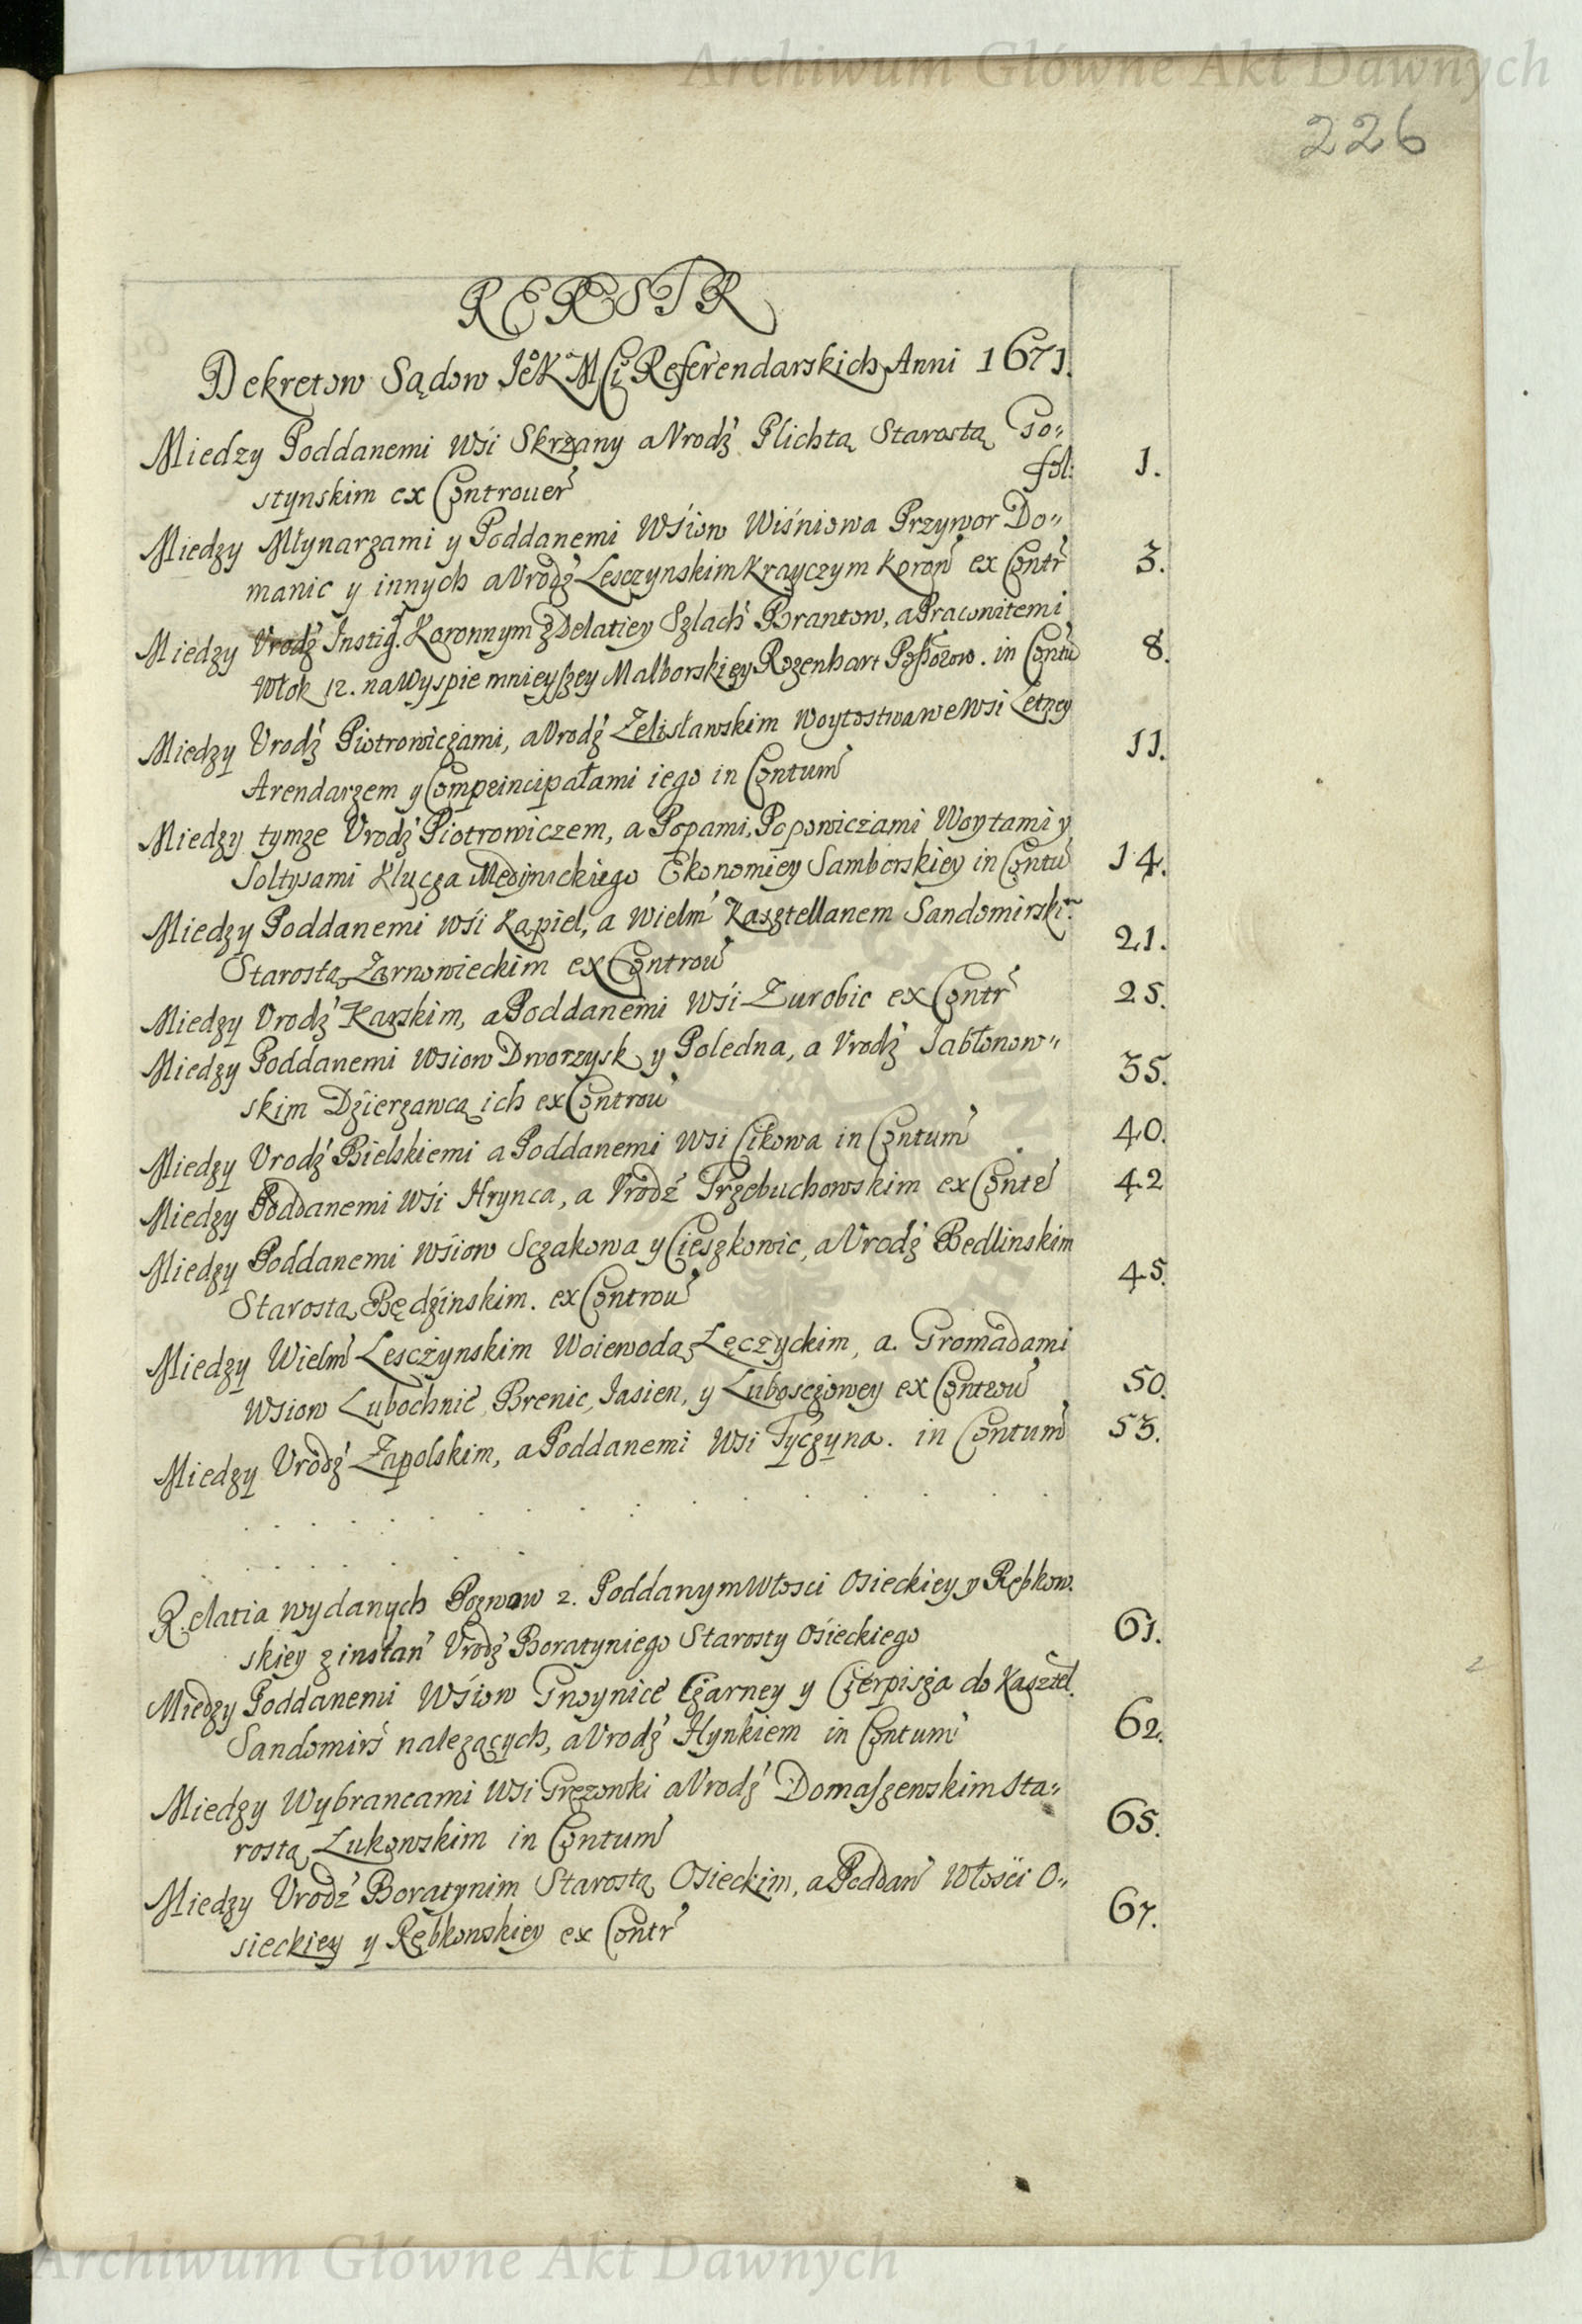 Archiwum Główne Akt Dawnych
226
REIESTR
Dekretow Sądow JeoKaMCi Referendarskich Anni 1671.
Miedzy Poddanemi Wśi Skrzany a Vrodz Plichtą Starostą Go-
stynskim ex Controuer fol: 1.
Miedzy Młynarzami y Poddanemi Wśiow Wiśniowa Przywor Do-
manic y innych a Vrodz Lesczynskim Krayczym Koron ex Contr 3.
Miedzy Vrodz Instig. Koronnym z Delatiey Szlach Brantow, a Pracowitemi
Włok 12. na Wyspie mnieyszey Malborskiey Rozenhart in Contu 8.
Miedzy Vrodz Piotrowiczami, a Vrodz Zelisławskim Woytostwa we Wsi Letney
Arendarzem y Compzincipałami iego in Contum 11.
Miedzy tymze Vrodz Piotrowiczem, a Popami, Popowiczami Woytami y
Soltysami Klucza Medynickiego Ekonomiey Samborskiey in Contu 14.
Miedzy Poddanemi Wśi Kąpiel, a Wielm Kasztellanem Sandomirski.
Starostą Zarnowieckim ex Controu 21.
Miedzy Vrodz Karskim, a Poddanemi Wśi Zurobic ex Contr 25.
Miedzy Poddanemi Wsiow Dworzysk y Poledna, a Vrodz Jabłonow-
skim Dzierzawcą ich ex Controu 35.
Miedzy Vrodz Bielskiemi a Poddanemi Wsi Cikowa in Contum 40.
Miedzy Poddanemi Wśi Hrynca, a Vrodz Trzebuchowskim ex Contr 42
Miedzy Poddanemi Wśiow Sczakowa y Cieszkowic, a Vrodz Bedlinskim
Starostą Będzinskim. ex Controu 45.
Miedzy Wielm Lesczynskim Woiewodą Łęczyckim, a. Gromadami
Wsiow Lubochnie, Brenic, Jasien, y Lubosczowey ex Controu 50.
Miedzy Vrodz Zapolskim, a Poddanemi Wsi Tyczyna. in Contum 53.
Relatia wydanych Pozwow 2. Poddanym Włosci Osieckiey y Rębkow.
skiey z instan Vrodz Boratyniego Starosty Osieckiego 61.
Miedzy Poddanemi Wśiow Gnoynice Czarney y Cierpisza do Kasztel.
Sandomirs nalezących, a Vrodz Hynkiem in Contum 62.
Miedzy Wybrancami Wsi Gręzowki a Vrodz Domaszewskim Sta-
rostą Łukowskim in Contum 65.
Miedzy Vrodz Boratynim Starostą Osieckim, a Poddan Włosci O-
sieckiey y Rębkowskiey ex Contr 67.
Archiwum Główne Akt Dawnych